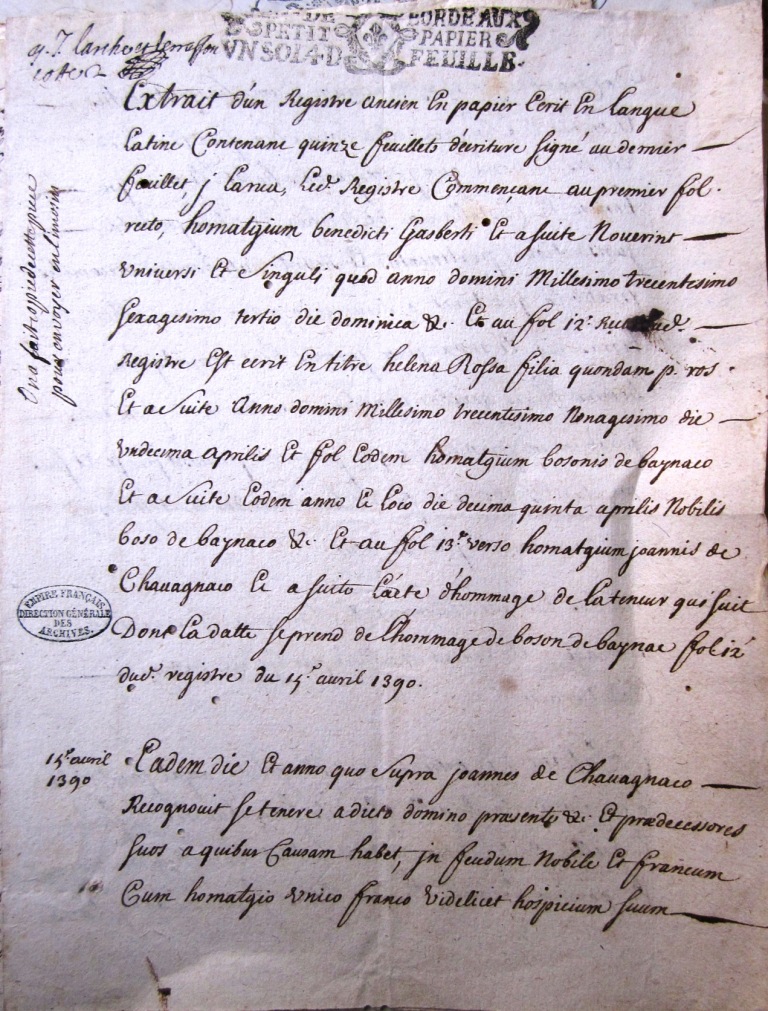 DE BORDEAUX
PETIT PAPIER
VN SOL 4 D FEUILLE.
q. 7 larche et terrasson
cotte 2
Extrait d'un Registre ancien En papier Ecrit En Langue
Latine Contenant quinze feuillets d'écriture signé au dernier
feuillet, j Larua, Led. Registre Commençant au premier fol.
recto, homatgium benedicti Gasberti Et a suite Noverint
Universi Et Singuli quod anno domini Millesimo trecentesimo
sexagesimo tertio die dominica &c. Et au fol 12.
Registre Est ecrit En titre helena Rossa filia quondam p. ros.
Et a Suite Anno domini Millesimo trecentesimo Nonagesimo die
Undecima aprilis Et fol Eodem homatgium bosonis de baynaco
Et a Suite Eodem anno Et Loco die decima quinta aprilis Nobilis
boso de baynaco &c. Et au fol 13.e verso homatgium joannis de
Chavagnaco Et a suite L'acte d'hommage de La teneur qui suit
Dont La datte se prend de L'hommage de boson de baynac fol 12.e
dud. registre du 15.e avril 1390.
On a fait copie de cette piece
pour envoyer en limoisin
EMPIRE FRANÇAIS
DIRECTION GÉNÉRALE
DES
ARCHIVES.
15.e avril
1390
Eadem die Et anno quo Supra joannes de Chavagnaco
Recognovit se tenere a dicto domino præsente &c. Et prædecessores
suos a quibus Causam habet, jn feudum Nobile Et francum
Cum homatgio Unico franco Videlicet hospicium suum